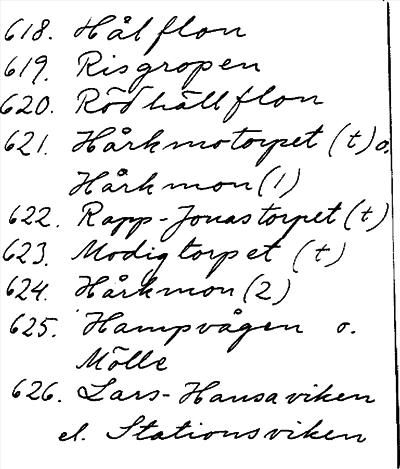 618. Hålflon
619. Risgropen
620. Rödhällflon
621. Hårkmotorpet (t) o.
Hårkmon (1)
622. Rapp-Jonastorpet (t)
623. Modigtorpet (t)
624. Hårkmon (2)
625. Hampvågen o.
Mölle
626. Lars-Hansaviken
el. Stationsviken